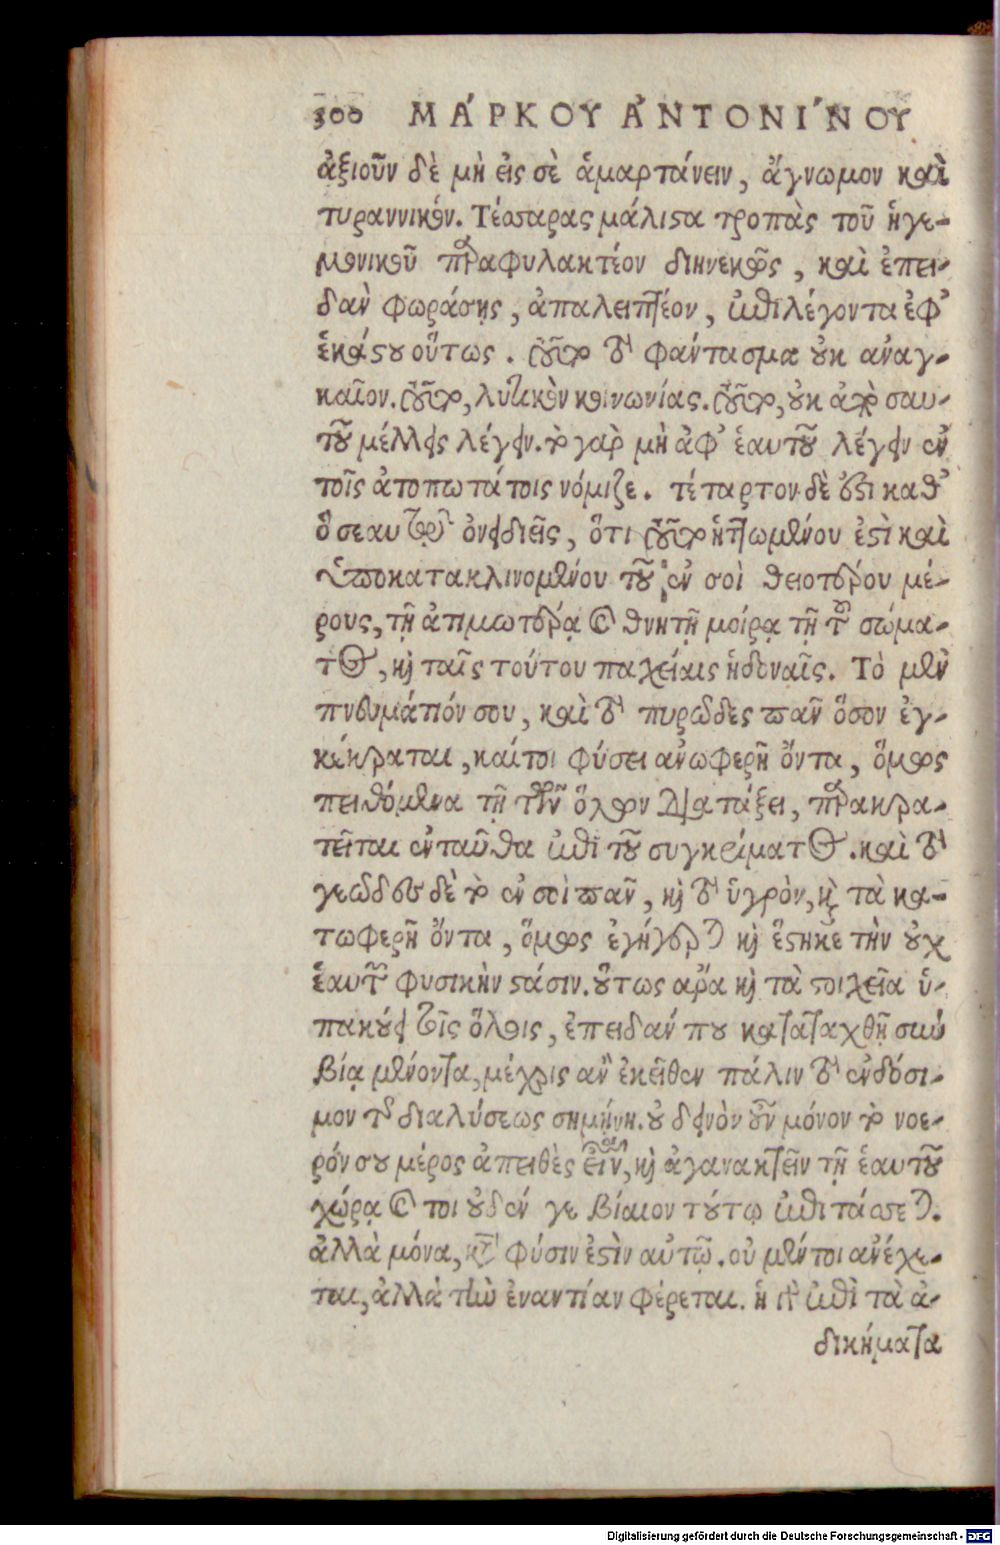 300 ΜΑ΄ΡΚΟΥ Α᾿ΝΤΟΝΙ΄ΝΟΥ
ἀξιοῦν δὲ μὴ εἰς σὲ ἁμαρτάνειν, ἄγνωμον καὶ
τυραννικόν. Τέσσαρας μάλιστα τροπὰς τοῦ ἡγε-
μονικοῦ παραφυλακτέον διηνεκῶς, καὶ ἐπει-
δὰν φωράσῃς, ἀπαλειπτέον, ἐπιλέγοντα ἐφ᾽
ἑκάστου οὕτως. τοῦτο τὸ φάντασμα οὐκ ἀναγ-
καῖον. τοῦτο, λυτικὸν κοινωνίας. τοῦτο, οὐκ ἀπὸ σαυ-
τοῦ μέλλεις λέγειν. τὸ γὰρ μὴ ἀφ᾽ ἑαυτοῦ λέγειν ἐν
τοῖς ἀτοπωτάτοις νόμιζε. τέταρτον δὲ ἐστι καθ᾽
ὃ σεαυτῷ ὀνειδιεῖς, ὅτι τοῦτο ἡττωμένου ἐστὶ καὶ
ὑποκατακλινομένου τοῦ ἐν σοὶ θειοτέρου μέ-
ρους, τῇ ἀτιμωτέρᾳ καὶ θνητῇ μοίρᾳ τῇ τοῦ σώμα-
τος, καὶ ταῖς τούτου παχείαις ἡδοναῖς. Τὸ μὲν
πνευμάτιόν σου, καὶ τὸ πυρῶδες πᾶν ὅσον ἐγ-
κέκραται, καίτοι φύσει ἀνωφερῆ ὄντα, ὅμως
πειθόμενα τῇ τῶν ὅλων διατάξει, παρακρα-
τεῖται ἐνταῦθα ἐπὶ τοῦ συγκρίματος. καὶ τὸ
γεῶδες δὲ τὸ ἐν σοὶ πᾶν, καὶ τὸ ὑγρὸν, καὶ τὰ κα-
τωφερῆ ὄντα, ὅμως ἐγήγερται καὶ ἕστηκε τὴν οὐχ
ἑαυτῶν φυσικὴν στάσιν. οὕτως ἄρα καὶ τὰ στοιχεῖα ὑ-
πακούει τοῖς ὅλοις, ἐπειδάν που καταταχθῇ σὺν
βίᾳ μένοντα, μέχρις ἂν ἐκεῖθεν πάλιν τὸ ἐνδόσι-
μον τῆς διαλύσεως σημήνη. οὐ δεινὸν οὖν μόνον τὸ νοε-
ρόν σου μέρος ἀπειθὲς εἶναι, καὶ ἀγανακτεῖν τῇ ἑαυτοῦ
χώρᾳ καὶ τοι οὐδέν γε βίαιον τούτῳ ἐπιτάσσεται.
ἀλλὰ μόνα, κατὰ φύσιν ἐστὶν αὐτῷ. οὐ μέντοι ἀνέχε-
ται, ἀλλὰ τὴν ἐναντίαν φέρεται. ἡ γὰρ ἐπὶ τὰ ἀ-
δικήματα
Digitalisierung gefördert durch die Deutsche Forschungsgemeinschaft - DFG